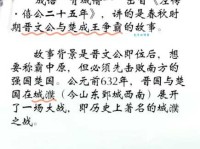 成语"背城借一"出自《左传
·僖公二十五年》，讲的是春秋时
期晋文公与楚成王争霸的故事。
故事背景是晋文公即位后，想
要称霸中原，但必须先击败南方的
强国楚国。公元前632年，晋国与楚
国在城濮（今山东鄄城西南）展开
了一场大战，即历史上著名的城濮
之战。